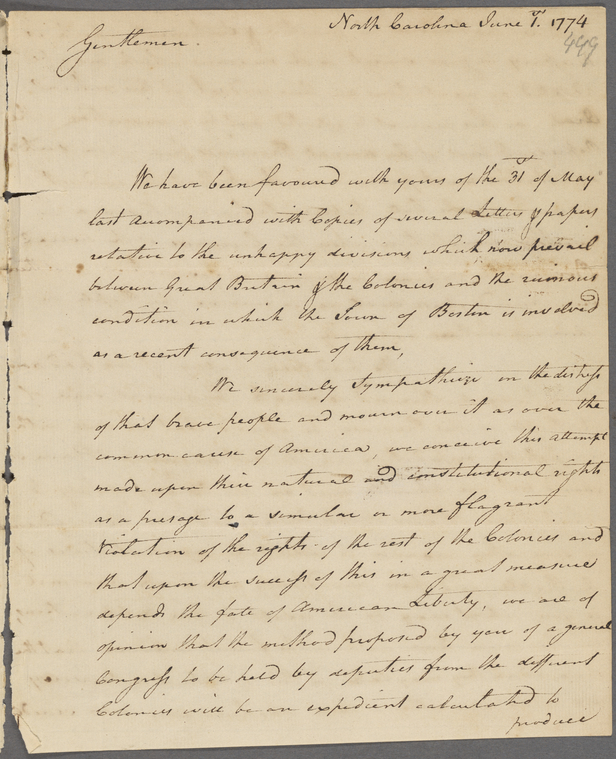 North Carolina June 1st. 1774
499
Gentlemen.
We have been favoured with yours of the 31st of May
last acompanied with Copies of several Letters & papers
relative to the unhappy divisions which now prevail
between Great Britain & the Colonies and the ruinous
condition in which the Town of Boston is involved
as a recent consequence of them,
We sincerely Sympathize in the distress
of that brave people and mourn over it as over the
common cause of America, we conceive this attempt
made upon their natural and constitutional rights
as a presage to a simular or more flagrant
Violation of the rights of the rest of the Colonies and
that upon the success of this in a great measure
depends the fate of American Liberty, we are of
opinion that the method proposed by you of a general
Congress to be held by deputies from the different
Colonies will be an expedient calculated to
produce